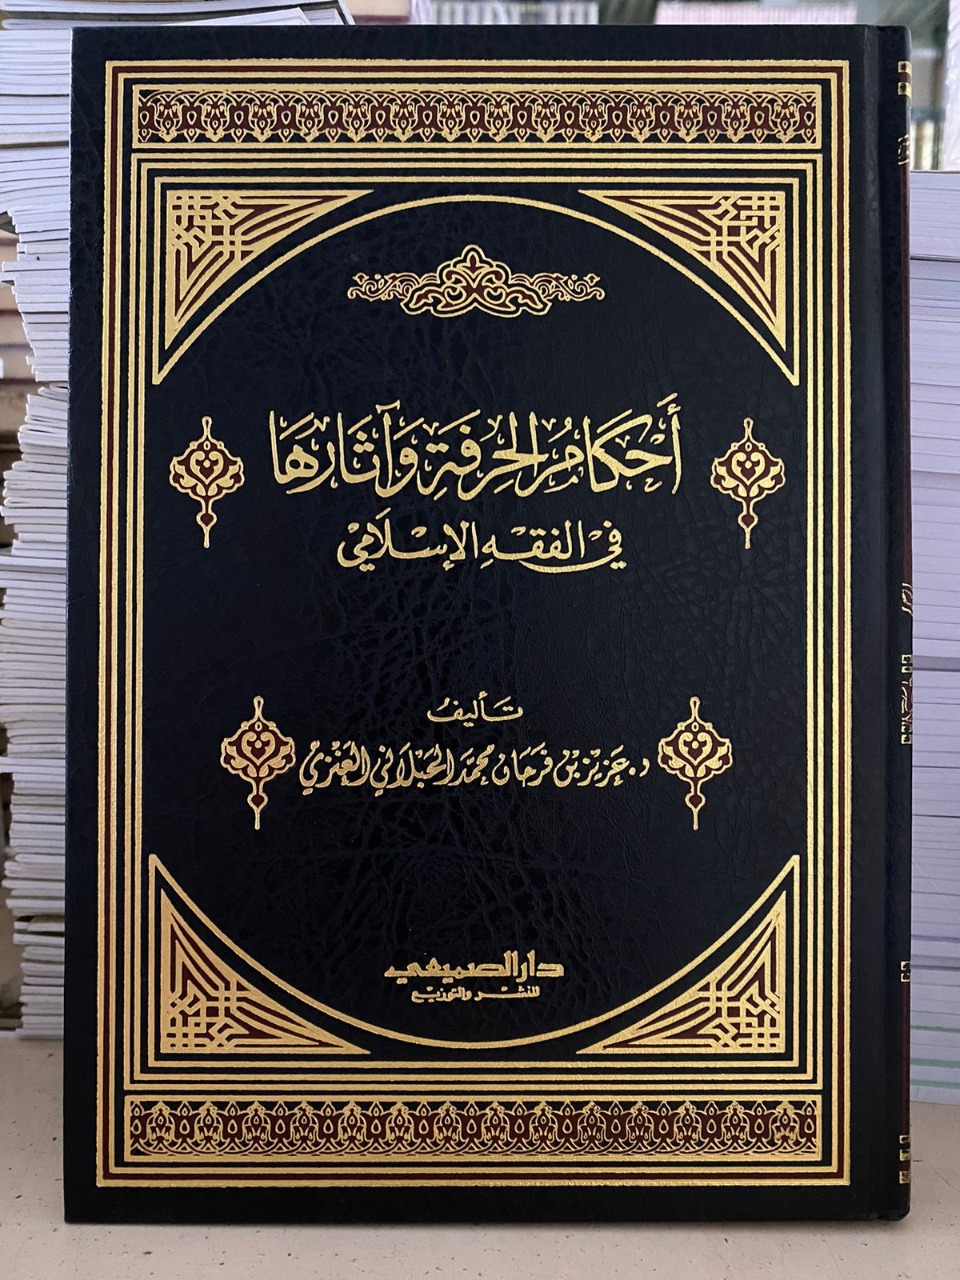 أَحْكَامُ الْحِرْفَةِ وَآثَارُهَا
في الفقه الإسلامي
تأليف
د. عزيز بن فرحان محمد الحبلاني العنزي
دار الصميعي
للنشر والتوزيع